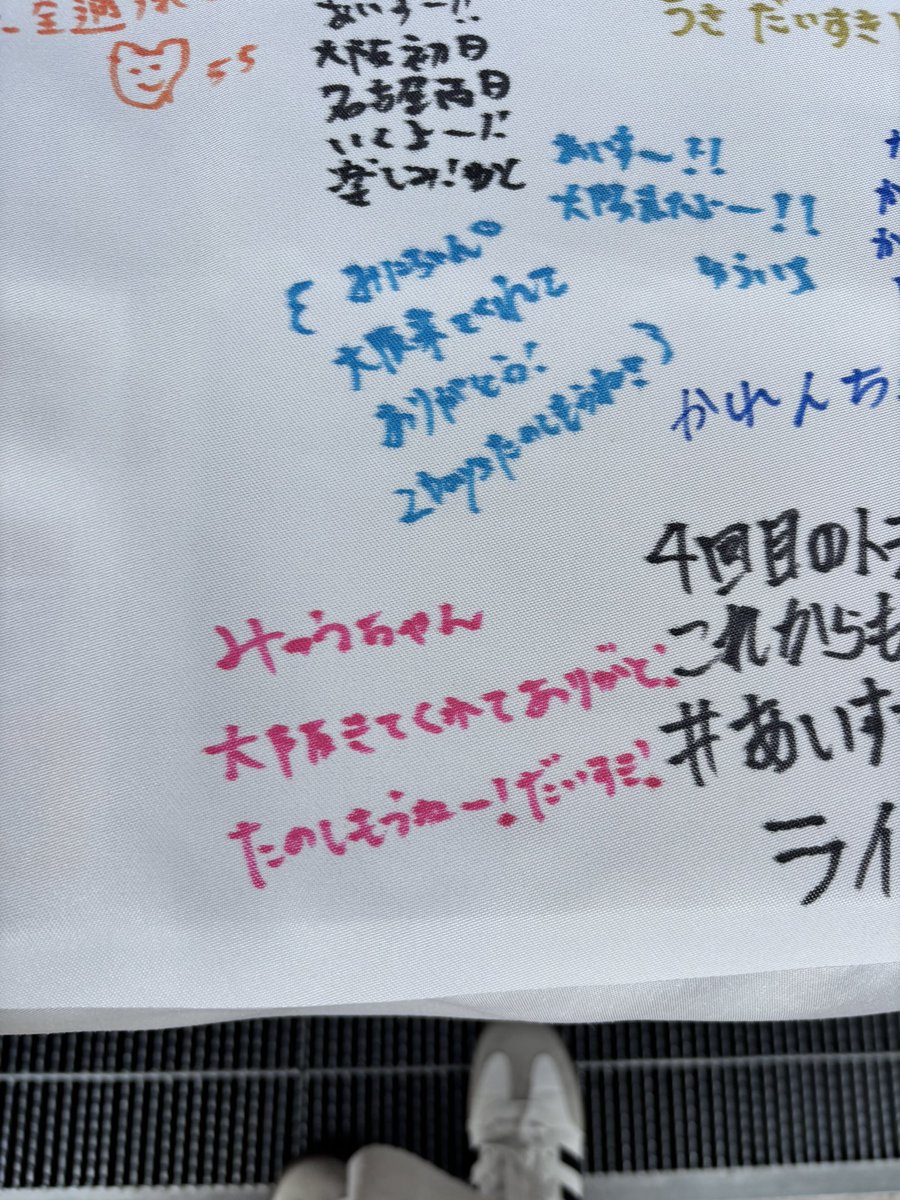 あいすー!!
大阪初日
名古屋両日
いくよーだ
楽しみ!
うさ だいすき
あいすー!!
大阪きたよー!!
みにちゃん
大阪来てくれて
ありがとう!
2Daysたのしもうね!
かれんち
4回目のトラ
これからも
#あいす
ライ
みゅうちゃん
大阪きてくれてありがと!
たのしもうねー!だいすき!